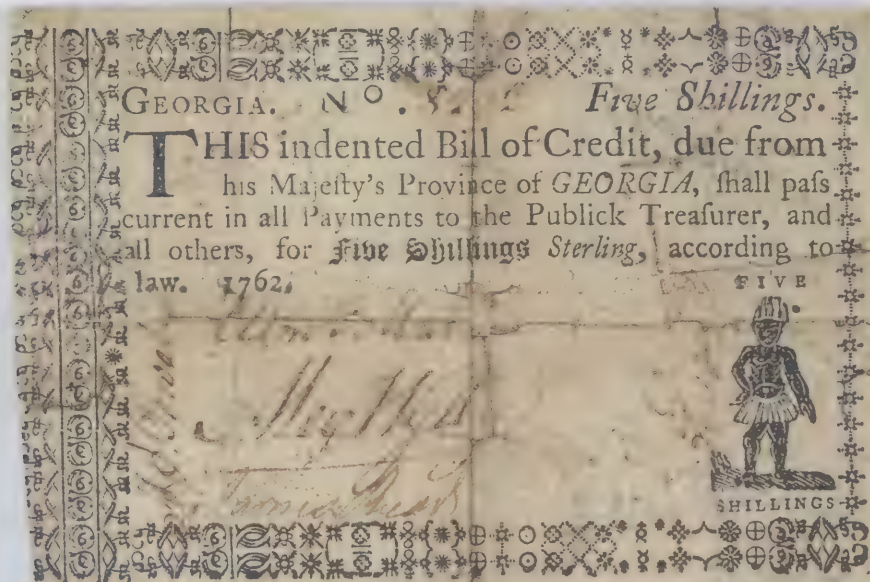 GEORGIA. No. Five Shillings.
THIS indented Bill of Credit, due from
his Majeſty's Province of GEORGIA, ſhall paſs
current in all Payments to the Publick Treaſurer, and
all others, for Five Shillings Sterling, according to
law. 1762.
FIVE
SHILLINGS